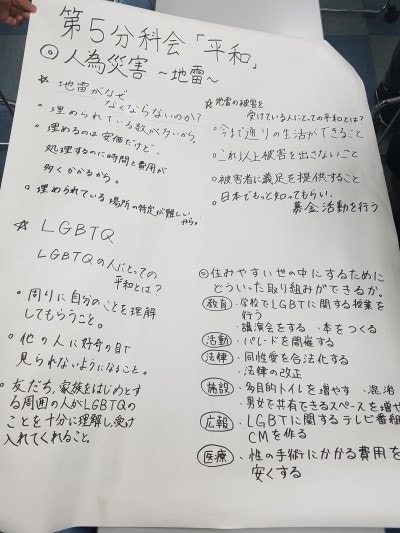 第5分科会「平和」
◎人為災害 ～地雷～
☆ 地雷がなぜ
なくならないのか？
• 埋められている数が多いから。
• 埋めるのは安価だけど、
処理するのに時間と費用が
多くかかるから。
• 埋められている場所の特定が難しい
から。
☆地雷の被害を
受けている人にとっての平和とは？
○今まで通りの生活ができること
○これ以上被害を出さないこと
○被害者に義足を提供すること
○日本でもっと知ってもらい。
募金活動を行う
☆ LGBTQ
LGBTQの人にとっての
平和とは？
• 周りに自分のことを理解
してもらうこと。
• 他の人に好奇の目で
見られないようになること。
• 友だち、家族をはじめとす
る周囲の人がLGBTQの
ことを十分に理解し、受け
入れてくれること。
◎住みやすい世の中にするために
どういった取り組みができるか。
教育 ・学校でLGBTに関する授業を
行う
・講演会をする ・本をつくる
活動 ・パレードを開催する
法律 ・同性愛を合法化する
・法律の改正
施設 ・多目的トイレを増やす ・混浴
・男女で共有できるスペースを増や
広報 ・LGBTに関するテレビ番組
CMを作る
医療 ・性の手術にかかる費用を
安くする